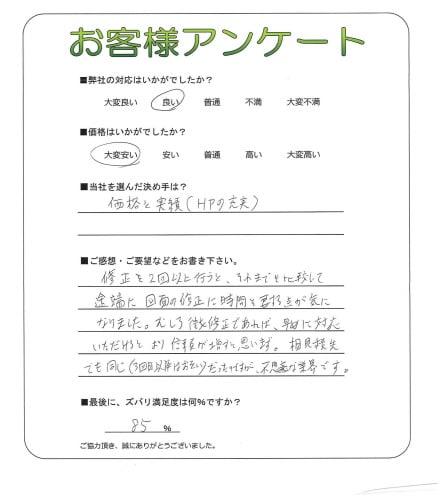 お客様アンケート
■弊社の対応はいかがでしたか?
大変良い 良い 普通 不満 大変不満
■価格はいかがでしたか?
大変安い 安い 普通 高い 大変高い
■当社を選んだ決め手は?
価格と実績(HPの充実)
■ご感想・ご要望などをお書き下さい。
修正を2回以上行うと、それまでと比較して
途端に図面の修正に時間を要する点が気に
なりました。むしろ微修正であれば、早めに対応
いただけると より信頼が増すと思います。相見積先
でも同じ(3回目以降はおそい)だったですが、不思議な業界です。
■最後に、ズバリ満足度は何%ですか?
85 %
ご協力頂き、誠にありがとうございました。